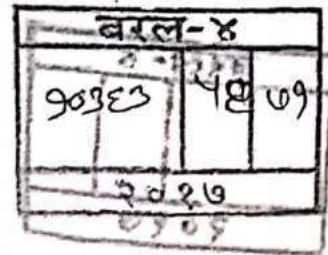 बरल-४
१०३६३ ५८ ७१
२०१७